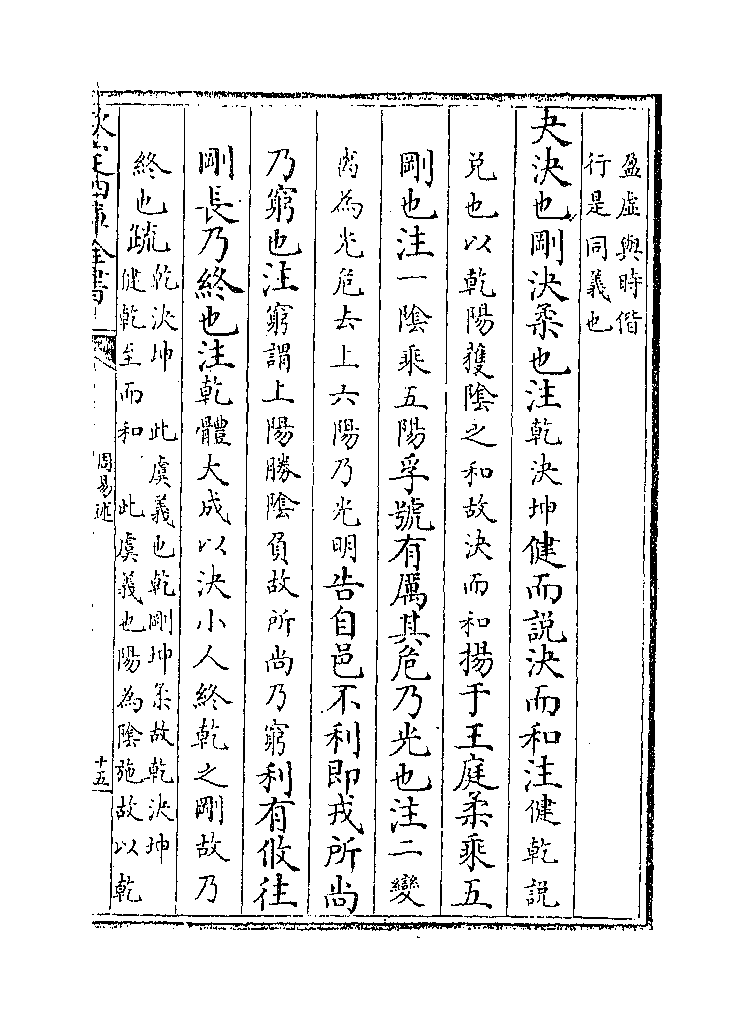 盈虛與時偕
行是同義也
夬決也剛決柔也注乾決坤健而說決而和注健乾說
兌也以乾陽獲陰之和故決而和揚于王庭柔乘五
剛也注一陰乘五陽孚號有厲其危乃光也注二變
离為光危去上六陽乃光明告自邑不利即戎所尚
乃窮也注窮謂上陽勝陰負故所尚乃窮利有攸往
剛長乃終也注乾體大成以決小人終乾之剛故乃
終也疏
乾決坤 此虞義也乾剛坤柔故乾決坤
健乾至而和 此虞義也陽為陰施故以乾
欽定四庫全書
周易述
十五